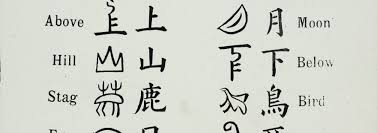 Above 上 月 Moon
Hill 山 下 Below
Stag 鹿 鳥 Bird